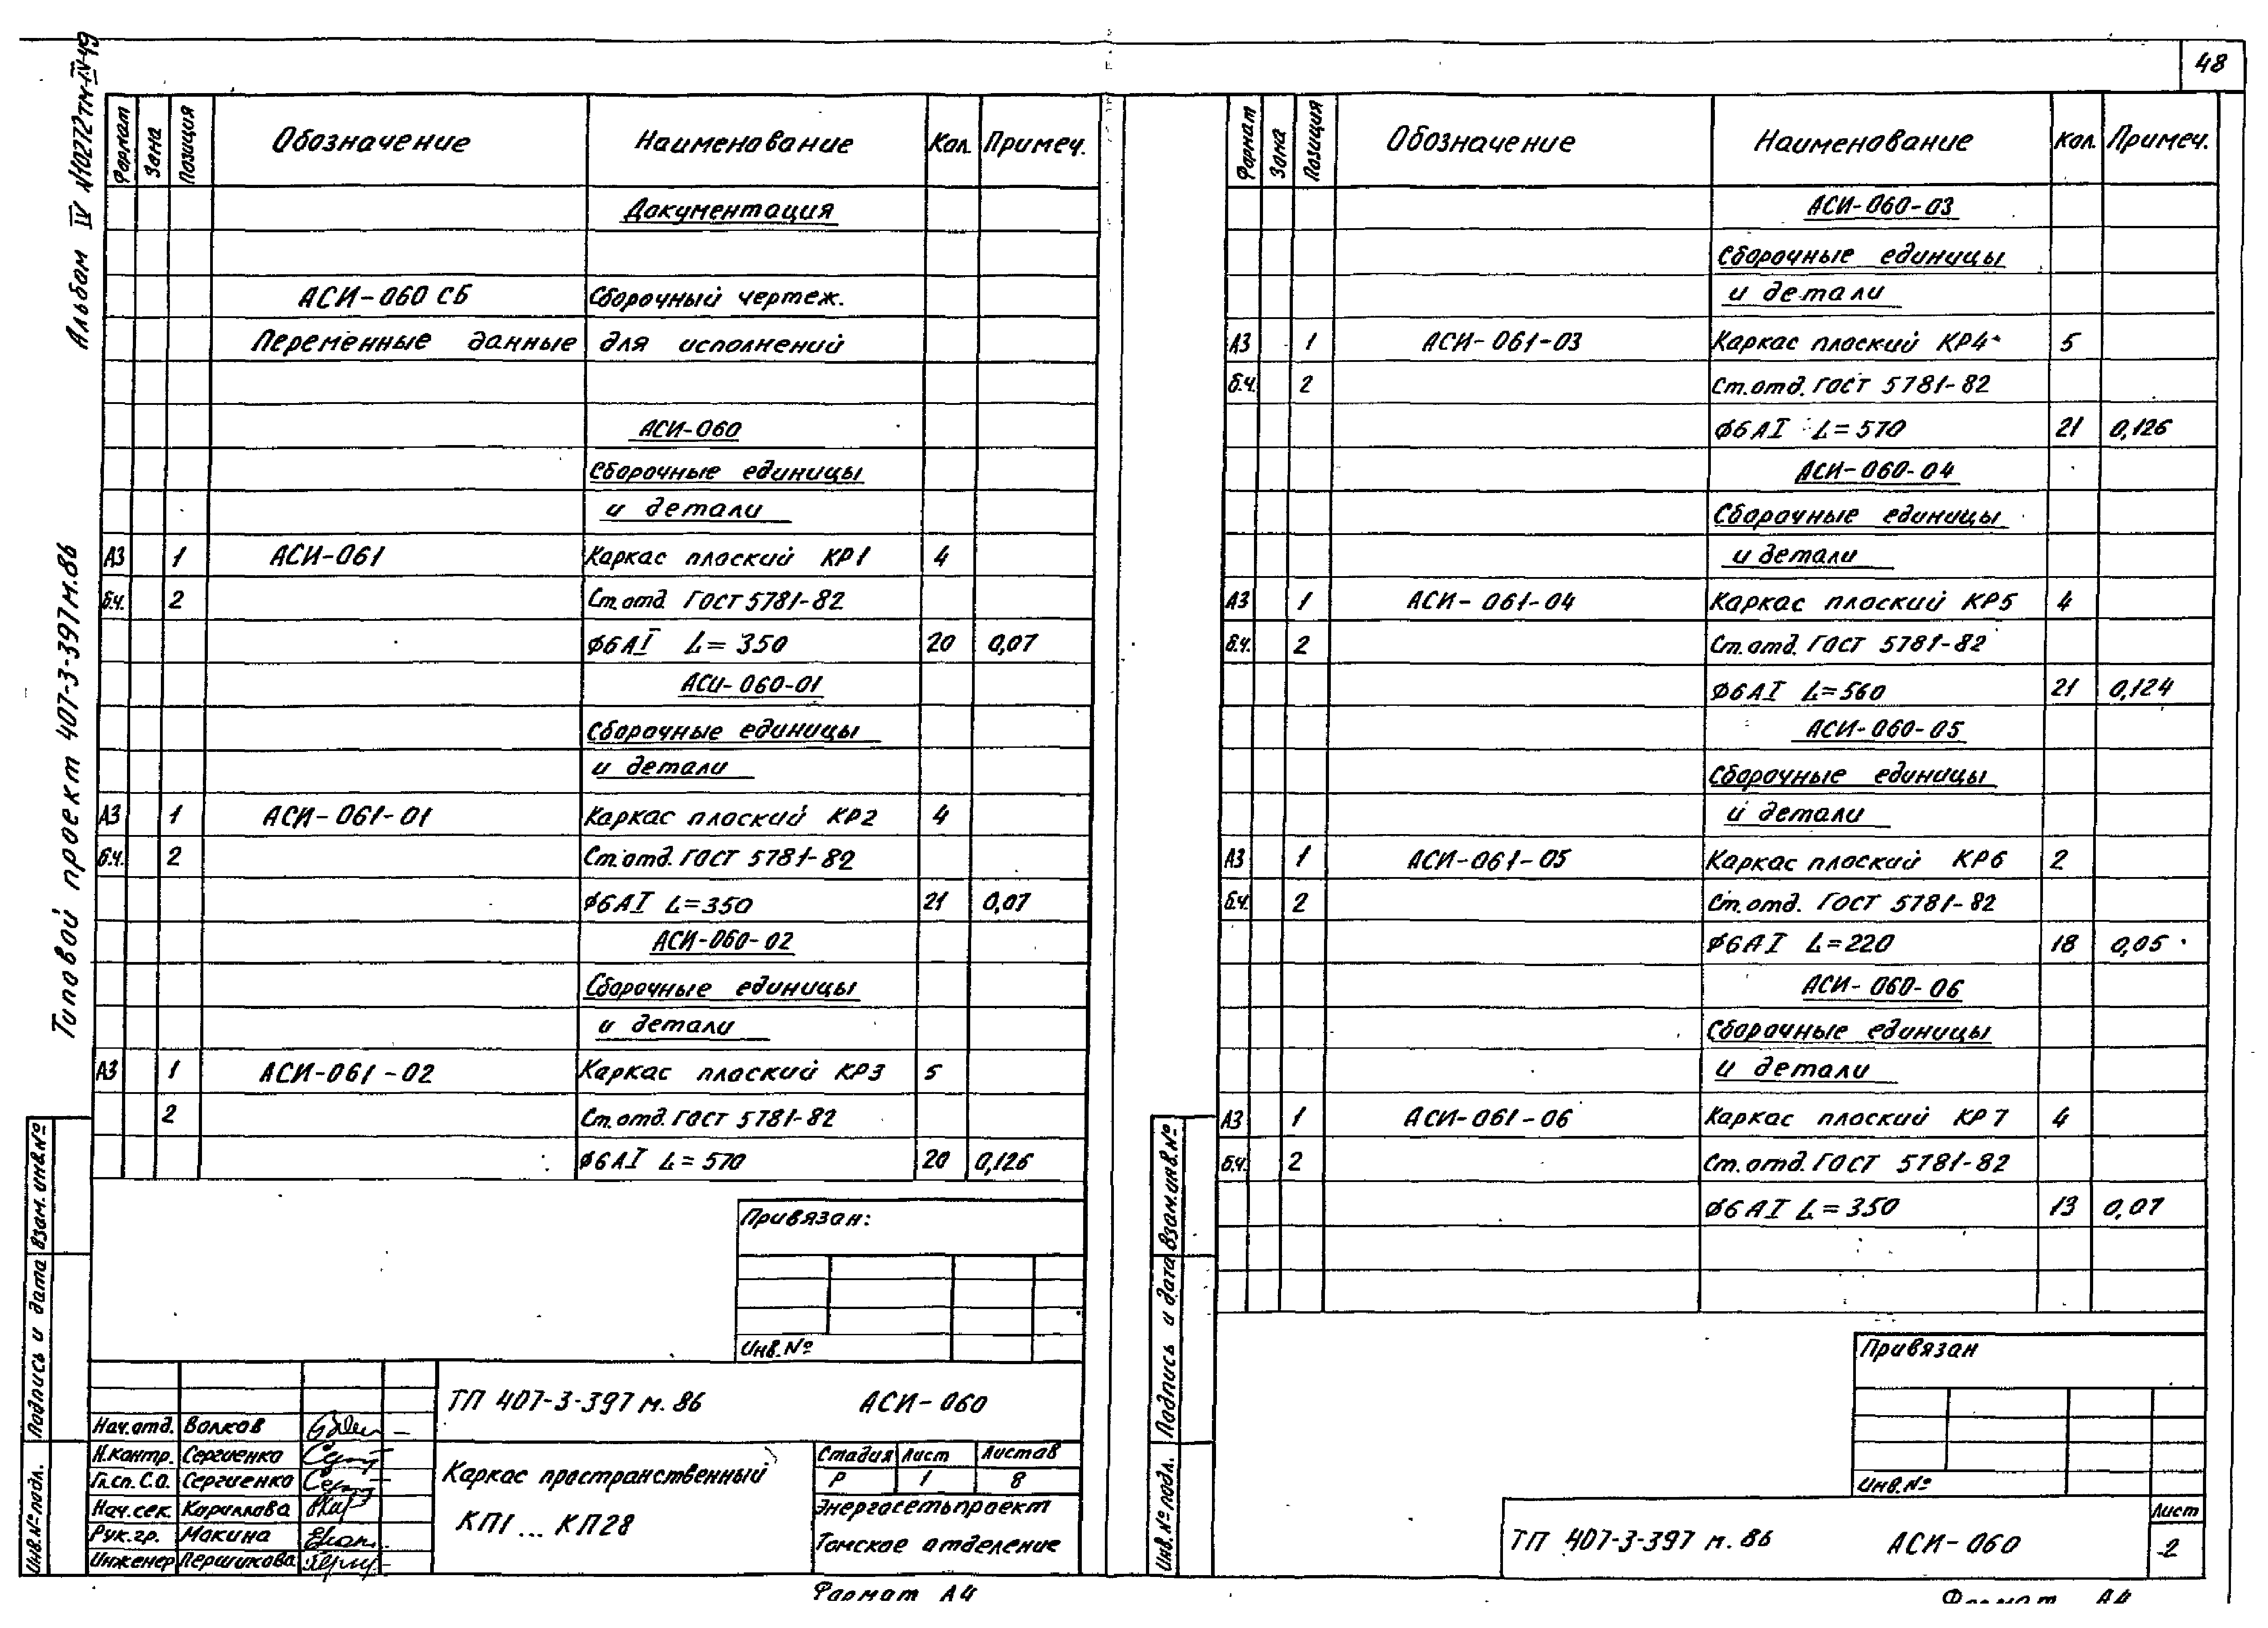 48
Альбом IV N10272тм-IV-49
Типовой проект 407-3-397м.86
Формат Зона Позиция Обозначение Наименование Кол. Примеч.
Документация
АСИ-060 СБ Сборочный чертеж.
Переменные данные для исполнений
АСИ-060
Сборочные единицы
и детали
А3 1 АСИ-061 Каркас плоский КР1 4
б.ч. 2 Ст.отд ГОСТ 5781-82
ф6АI L=350 20 0,07
АСИ-060-01
Сборочные единицы
и детали
А3 1 АСИ-061-01 Каркас плоский КР2 4
б.ч. 2 Ст.отд. ГОСТ 5781-82
ф6АI L=350 21 0,07
АСИ-060-02
Сборочные единицы
и детали
А3 1 АСИ-061-02 Каркас плоский КР3 5
2 Ст.отд. ГОСТ 5781-82
ф6АI L=570 20 0,126
Привязан:
Инв.№
ТП 407-3-397м.86 АСИ-060
Нач.отд. Волков
Н.контр. Сергиенко
Гл.сп.С.О. Сергиенко
Нач.сек. Кариллова
Рук.гр. Макина
Инженер Першикова
Каркас пространственный
КП1...КП28
Стадия Лист Листов
Р 1 8
Энергосетьпроект
Томское отделение
Инв.№ подл. Подпись и дата Взам.инв.№
Формат А4
Формат Зона Позиция Обозначение Наименование Кол. Примеч.
АСИ-060-03
Сборочные единицы
и детали
А3 1 АСИ-061-03 Каркас плоский КР4 5
б.ч. 2 Ст.отд. ГОСТ 5781-82
ф6АI L=570 21 0,126
АСИ-060-04
Сборочные единицы
и детали
А3 1 АСИ-061-04 Каркас плоский КР5 4
б.ч. 2 Ст.отд. ГОСТ 5781-82
ф6АI L=560 21 0,124
АСИ-060-05
Сборочные единицы
и детали
А3 1 АСИ-061-05 Каркас плоский КР6 2
б.ч. 2 Ст.отд. ГОСТ 5781-82
ф6АI L=220 18 0,05
АСИ-060-06
Сборочные единицы
и детали
А3 1 АСИ-061-06 Каркас плоский КР7 4
б.ч. 2 Ст.отд. ГОСТ 5781-82
ф6АI L=350 13 0,07
Привязан
Инв.№
ТП 407-3-397 м.86 АСИ-060
Лист
2
Инв.№ подл. Подпись и дата Взам.инв.№
Формат А4